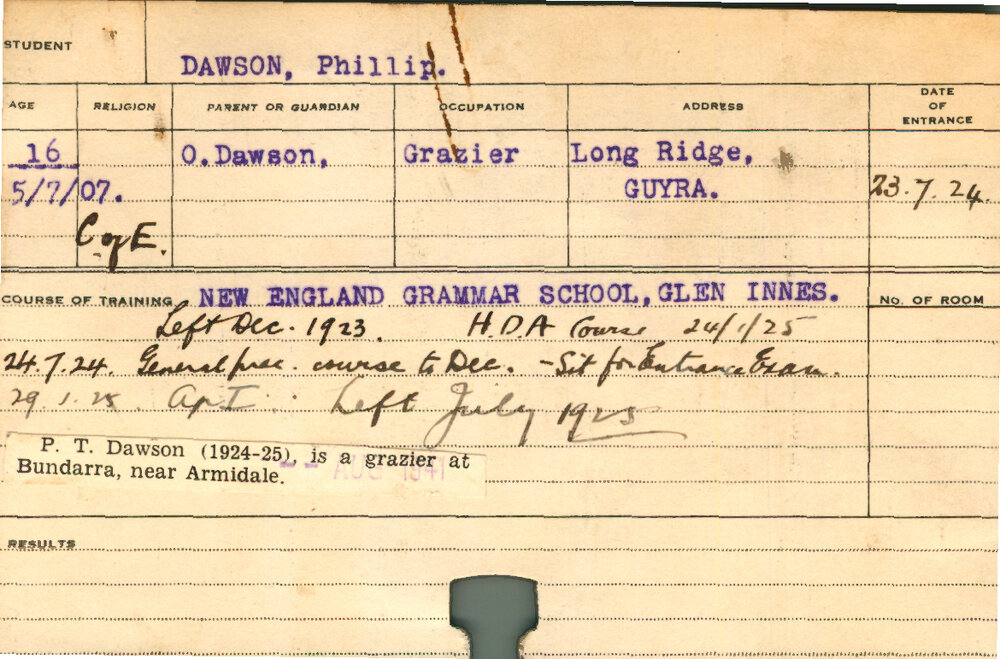 STUDENT
DAWSON, Phillip.
AGE RELIGION PARENT OR GUARDIAN OCCUPATION ADDRESS DATE OF ENTRANCE
16 O.Dawson, Grazier Long Ridge,
5/7/07. GUYRA. 23.7.24.
C of E.
COURSE OF TRAINING NEW ENGLAND GRAMMAR SCHOOL, GLEN INNES. No. OF ROOM
Left Dec. 1923. H.D.A Course 24/1/25
24.7.24. General prac. course to Dec. - Sit for Entrance Exam.
29.1.25. Left July 1925
P. T. Dawson (1924-25), is a grazier at
Bundarra, near Armidale.
AUG 1941
RESULTS